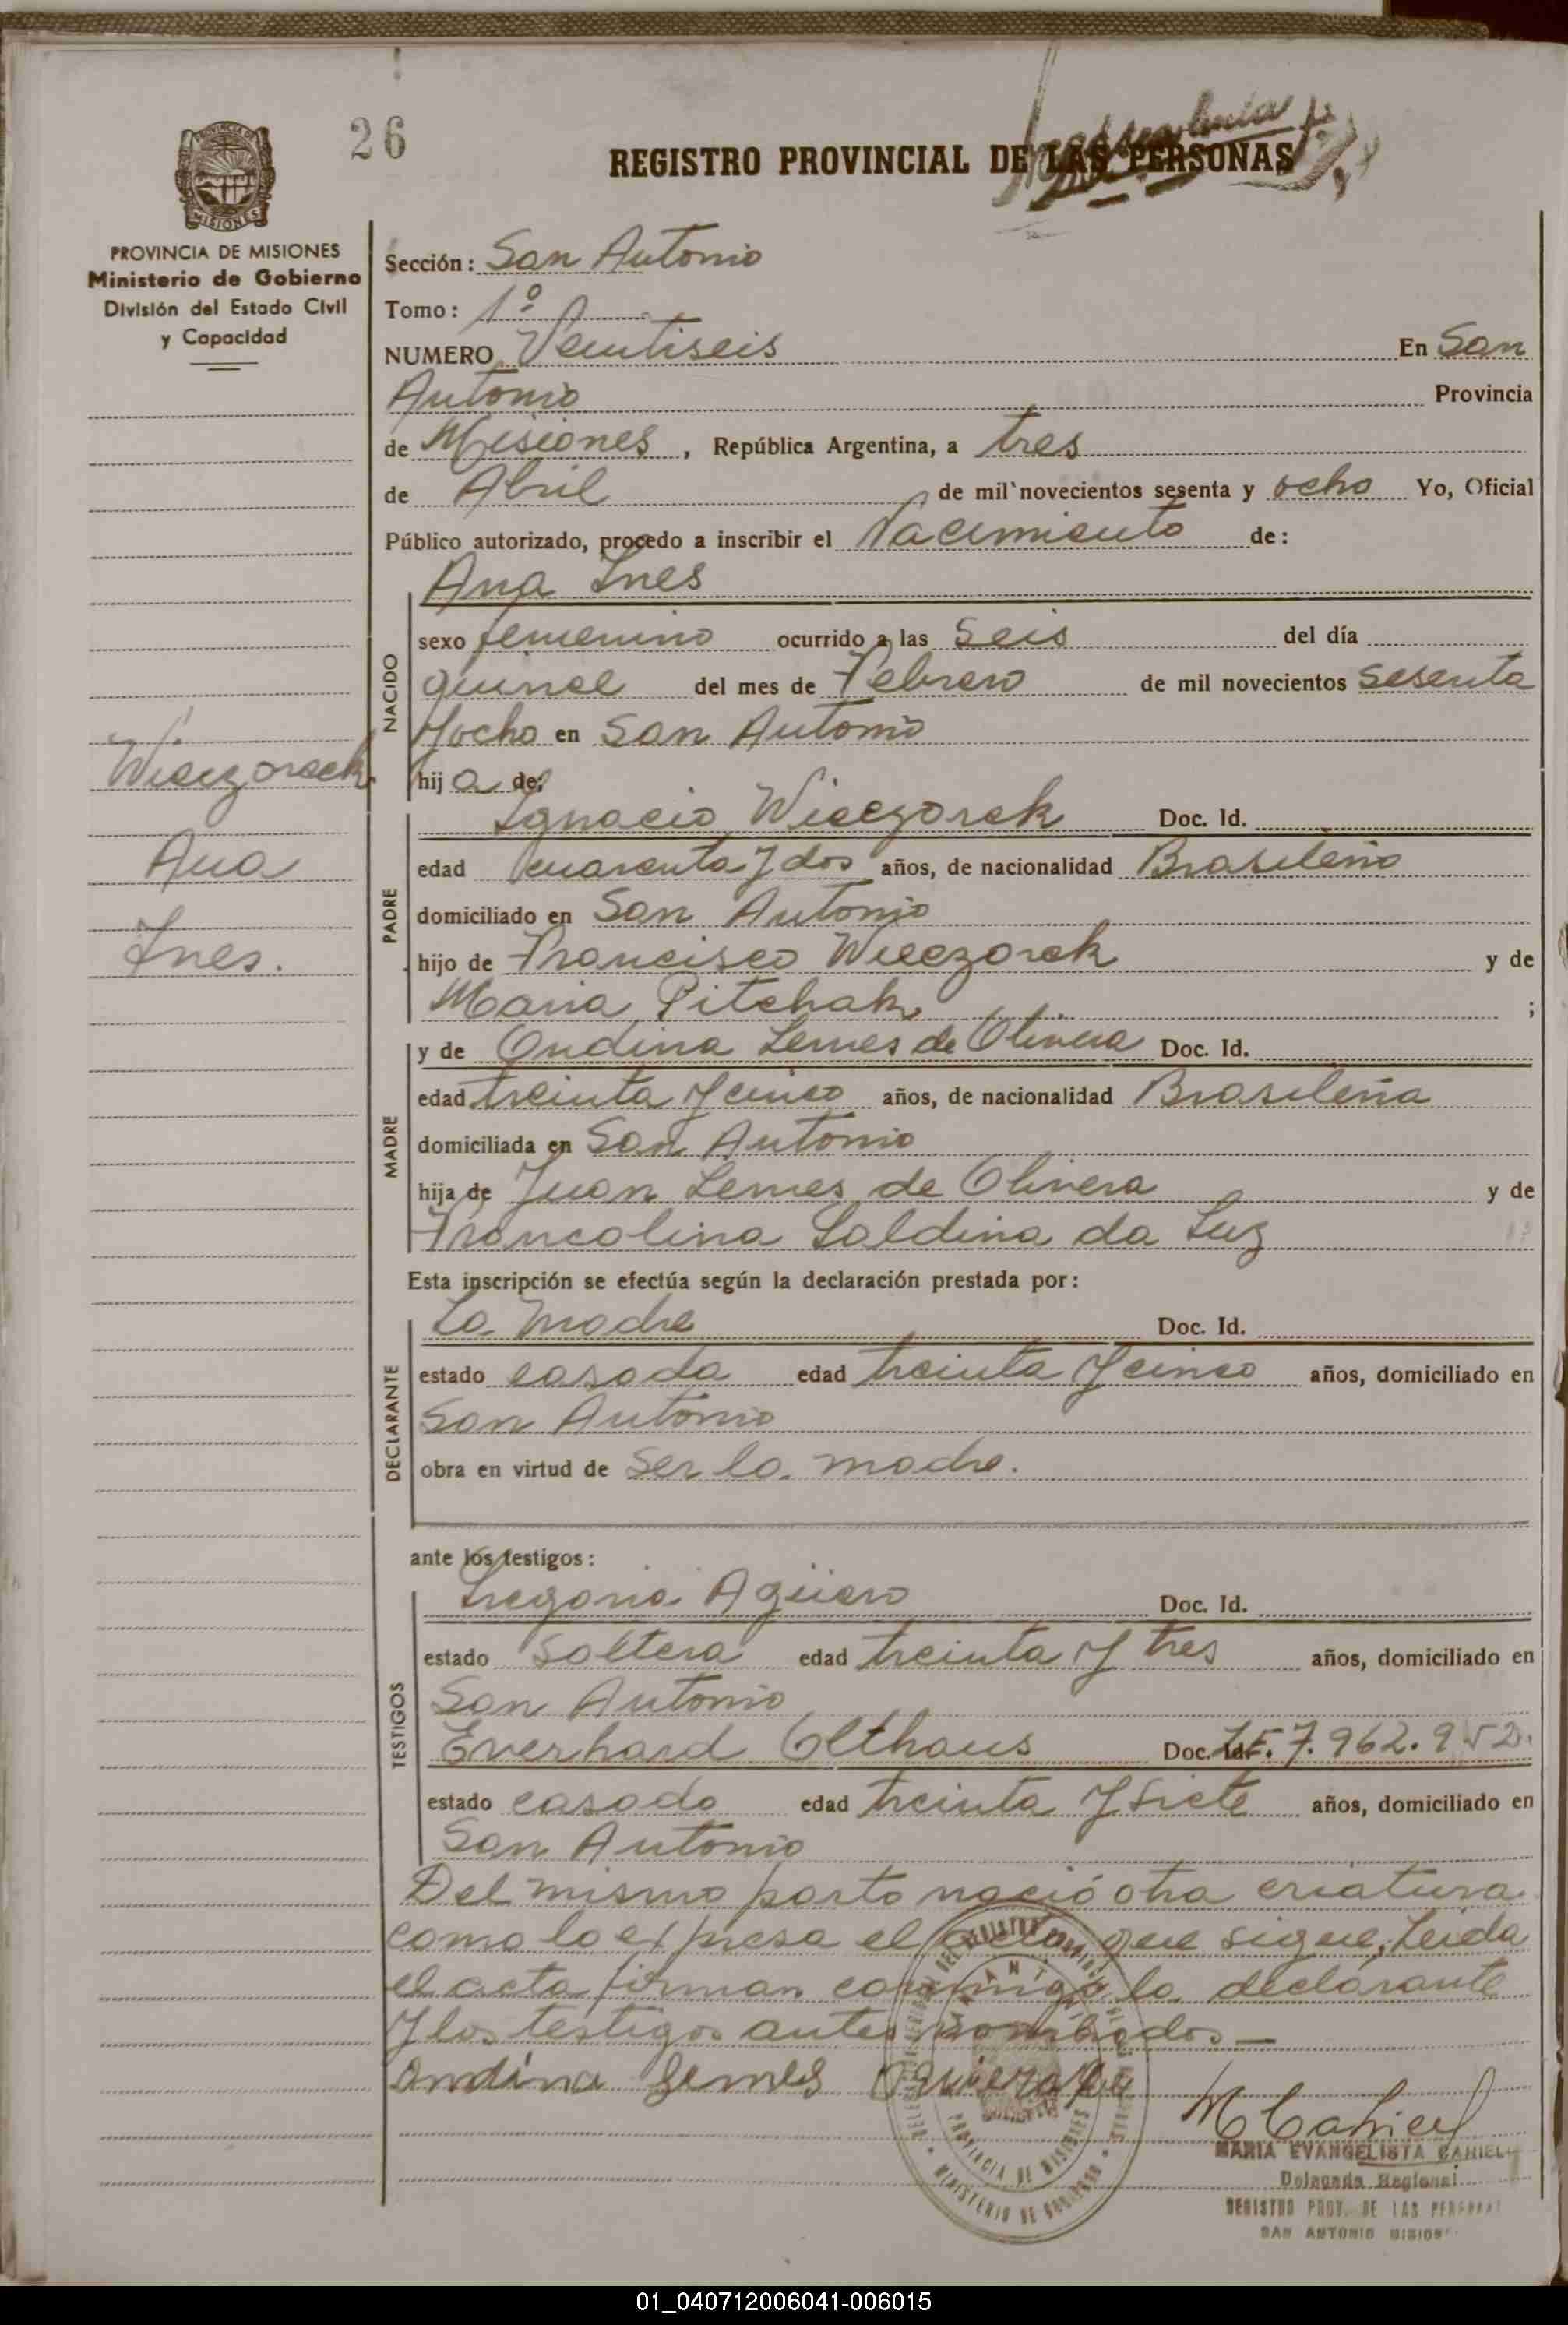 26
REGISTRO PROVINCIAL DE LAS PERSONAS
PROVINCIA DE MISIONES
Ministerio de Gobierno
División del Estado Civil
y Capacidad
Sección: San Antonio
Tomo: 1º
NUMERO Veintiseis En San
Antonio Provincia
de Misiones, República Argentina, a tres
de Abril de mil novecientos sesenta y ocho Yo, Oficial
Público autorizado, procedo a inscribir el Nacimiento de:
Ana Ines
NACIDO
sexo femenino ocurrido a las seis del día
quince del mes de Febrero de mil novecientos sesenta
y ocho en San Antonio
hija de:
Wieczorek
Ana
Ines.
PADRE
Ignacio Wieczorek Doc. Id.
edad cuarenta y dos años, de nacionalidad Brasileño
domiciliado en San Antonio
hijo de Francisco Wieczorek y de
Maria Pitchak ;
MADRE
y de Ondina Lemes de Olivera Doc. Id.
edad treinta y cinco años, de nacionalidad Brasileña
domiciliada en San Antonio
hija de Juan Lemes de Olivera y de
Francolina Saldina da Luz
Esta inscripción se efectúa según la declaración prestada por:
DECLARANTE
La madre Doc. Id.
estado casada edad treinta y cinco años, domiciliado en
San Antonio
obra en virtud de ser la madre.
ante los testigos:
TESTIGOS
Gregoria Agüero Doc. Id.
estado soltera edad treinta y tres años, domiciliado en
San Antonio
Everhard Olthaus Doc. Id. 7.962.952.
estado casado edad treinta y siete años, domiciliado en
San Antonio
Del mismo parto nació otra criatura
como lo expresa el acta que sigue, Leida
el acta firman conmigo la declarante
y los testigos antes nombrados
Ondina Lemes
M Cahiel
MARIA EVANGELISTA CAHIEL
Delegada Regional
REGISTRO PROV. DE LAS PERSONAS
SAN ANTONIO MISIONES
PROVINCIA DE MISIONES
MINISTERIO DE GOBIERNO
01_040712006041-006015